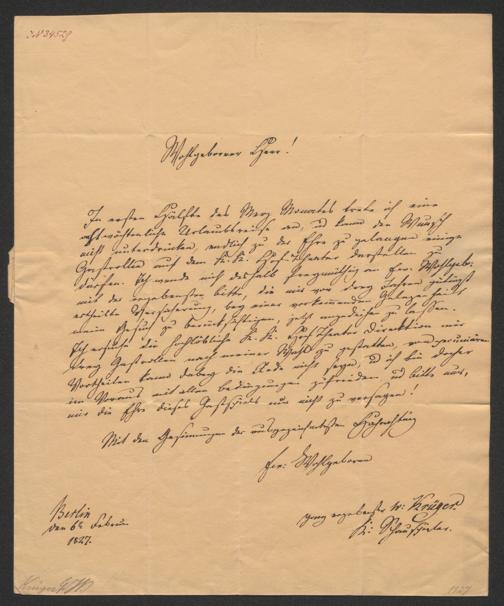 Wohlgeborner Herr!
In ersten Hälfte des Merz Monates trete ich eine
achtwöchentliche Urlaubsreise an, u kann den Wunsch
nicht unterdrücken, endlich zu der Ehre zu gelangen einige
Gastrollen auf dem K: K: Hof Theater darstellen zu
dürfen. Ich wende mich deshalb an Euer Wohlgeb:
mit der ergebensten bitte, die mir vor drey Jahren gütigst
ertheilte Versicherung, bey einer vorkommenden Gelegenheit
mein Gesuch zu berücksichtigen, jetzt zu lassen.
Ich ersuche die hochlöbliche K: K: Hof Theater direktion mir
drey Gastrollen nach meiner Wahl zu gestatten, von pecuniären
Vortheilen kann dabey die Rede nicht seyn, u ich bin daher
im Voraus mit allen bedingungen zufrieden, u bitte nur,
mir die Ehre dieses Gastspiels nur nicht zu versagen!
Mit den Gesinnungen der ausgezeichnetsten Hochachtung
Euer: Wohlgeboren
ganz ergebenster W: Krüger
K: Schauspieler.
Berlin
den 6t Februar
1827.
Krüger
1827